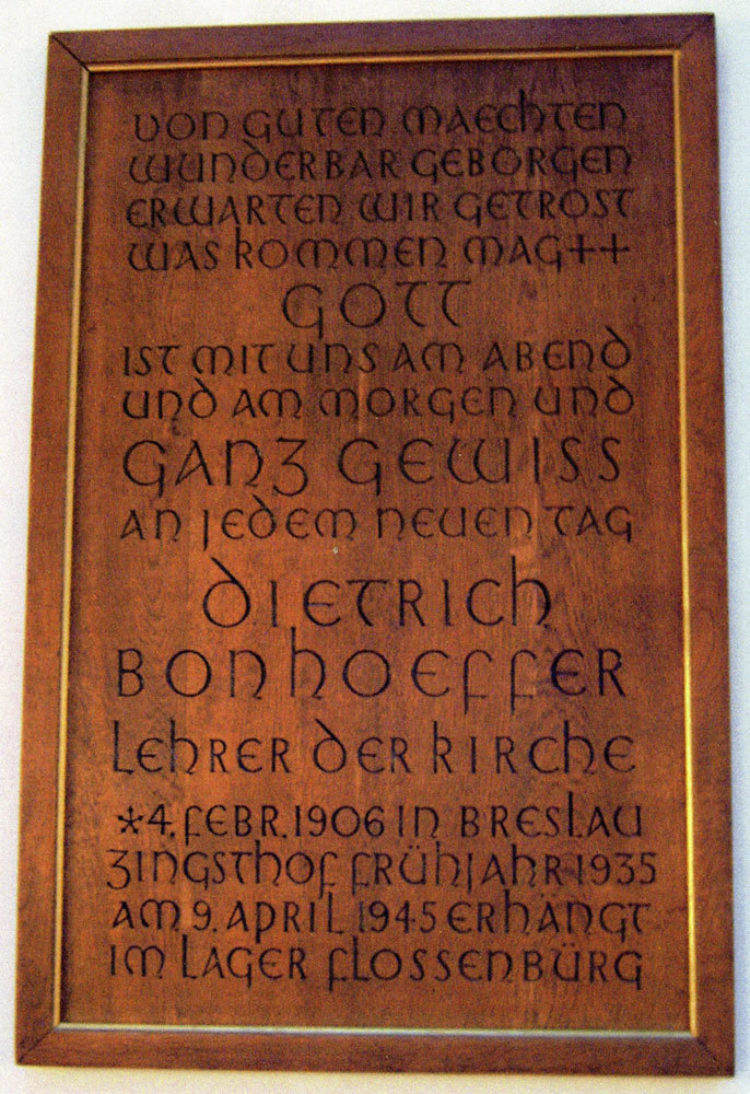 VON GUTEN MAECHTEN
WUNDERBAR GEBORGEN
ERWARTEN WIR GETROST
WAS KOMMEN MAG++
GOTT
IST MIT UNS AM ABEND
UND AM MORGEN UND
GANZ GEWISS
AN JEDEM NEUEN TAG
DIETRICH
BONHOEFFER
LEHRER DER KIRCHE
*4. FEBR. 1906 IN BRESLAU
ZINGSTHOF FRÜHJAHR 1935
AM 9. APRIL 1945 ERHÄNGT
IM LAGER FLOSSENBÜRG